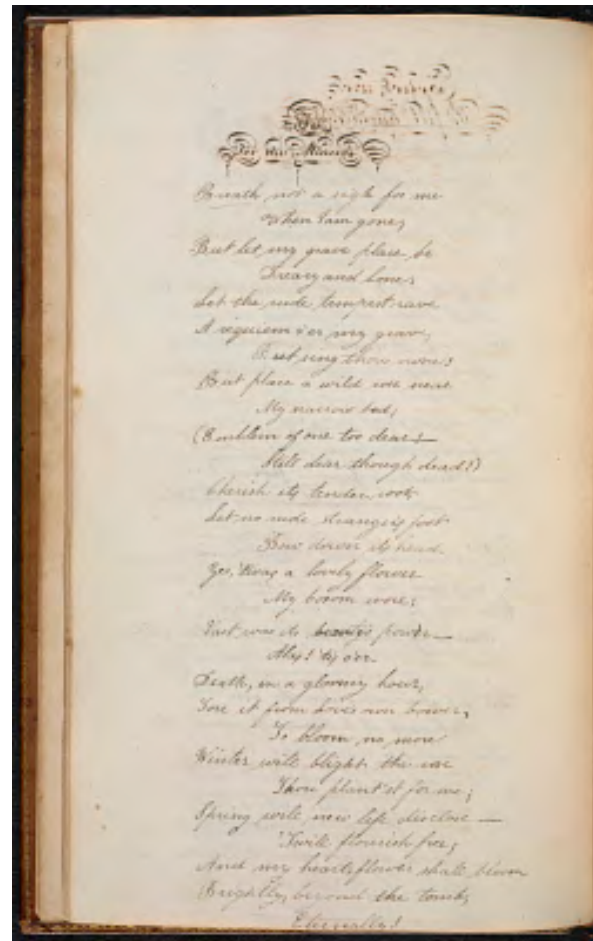 For the Minerva
Breath not a sigh for me
When I am gone,
But let my grave place be
Dreary and lone;
Let the rude tempest rave
A requiem o'er my grave,
But sing thou none!
But place a wild rose near
My narrow bed,
(Emblem of one too dear;—
Still dear though dead!)
Cherish its tender root,
Let no rude stranger's foot
Bow down its head.
Yes, 'twas a lovely flower
My bosom wore;
Vast was its beauty's power—
Alas! 'tis o'er
Death, in a gloomy hour,
Tore it from love's own bower,
To bloom no more
Winter will blight the rose
Thou plant'st for me;
Spring will new life disclose—
'Twill flourish free;
And my heart's flower shall bloom
Brightly, beyond the tomb,
Eternally!